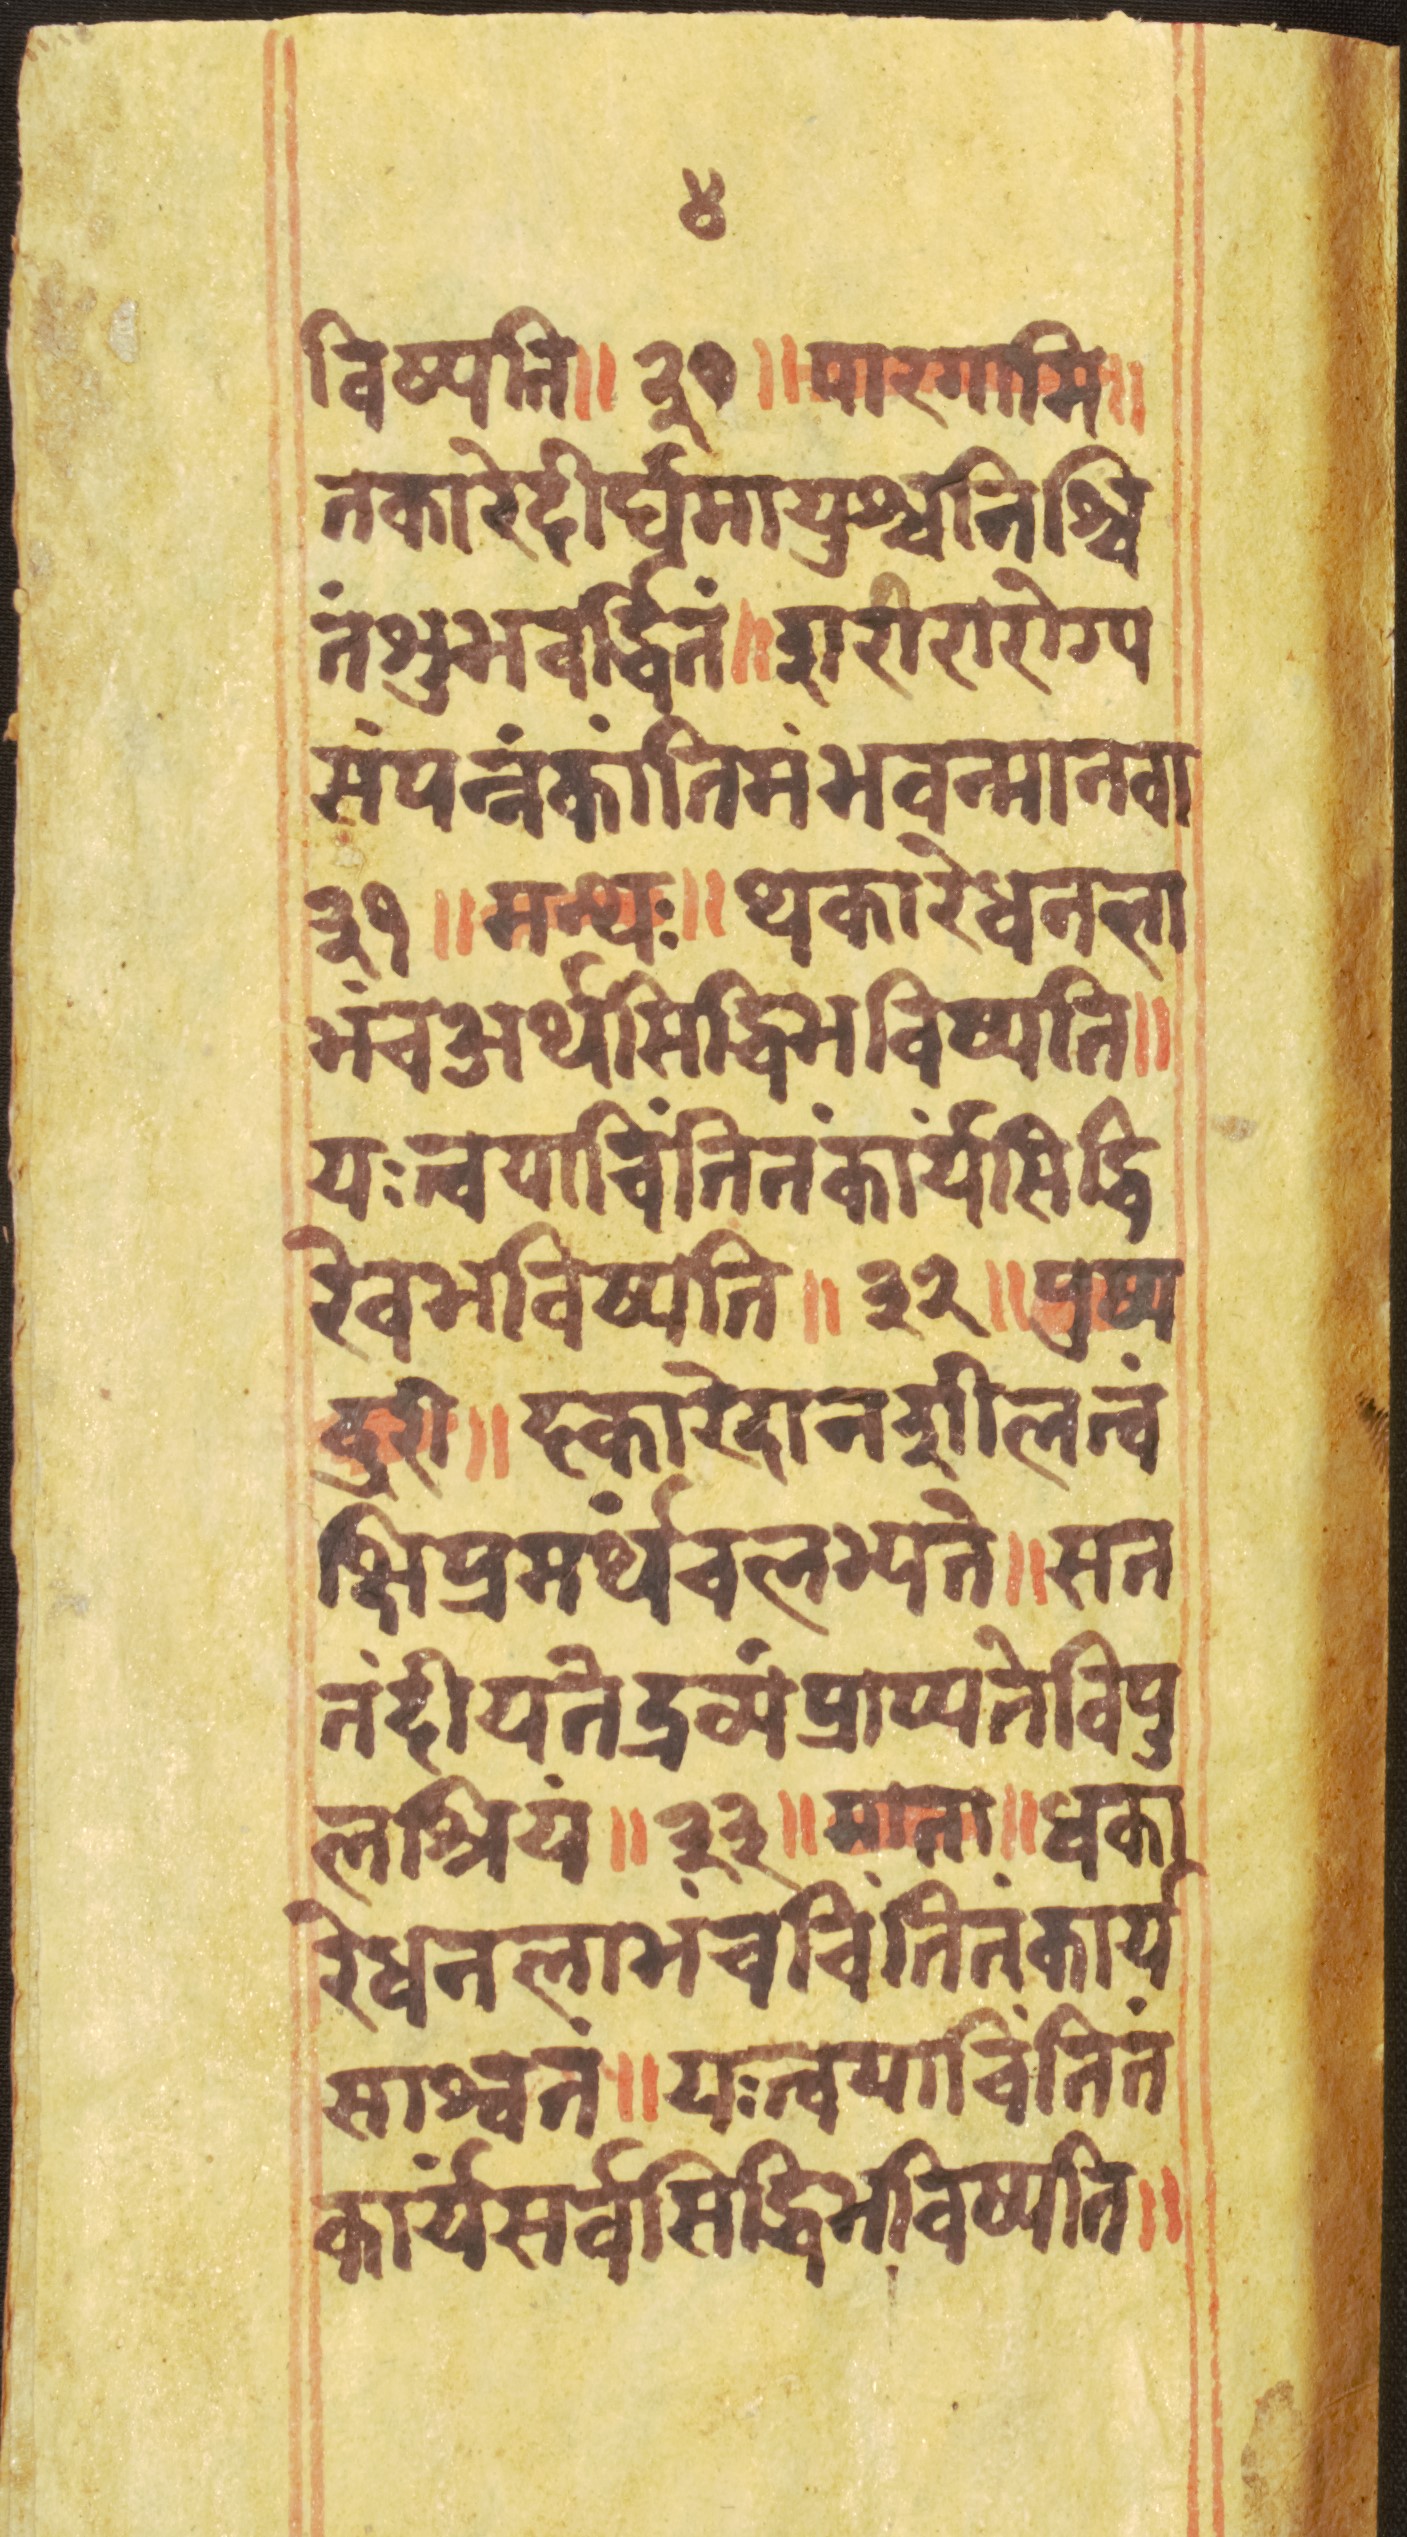 ४
विष्यति॥ ३० ॥पारगामि॥
तकारेदीर्घमायुश्चनिश्चि
तंशुभवर्द्धितं॥शरीरारोग्य
संपन्नंकांतिमंभवन्मानवा
३१ ॥मन्थः॥ थकारेधनला
भंचअर्थसिद्धिभविष्यति॥
यःत्वयाचिंतितंकार्यंसिद्धि
रेवभविष्यति ॥ ३२ ॥पुष्प
दुरी॥ दकारेदानशीलत्वं
क्षिप्रमर्थंचलभ्यते॥सत
तंदीयतेद्रव्यंप्राप्यतेविपु
लश्रियं॥ ३३॥माता॥धका
रेधनलाभंचचिंतितंकार्य
साश्वतं॥यःत्वयाचिंतितं
कार्यंसर्वसिद्धिभविष्यति॥